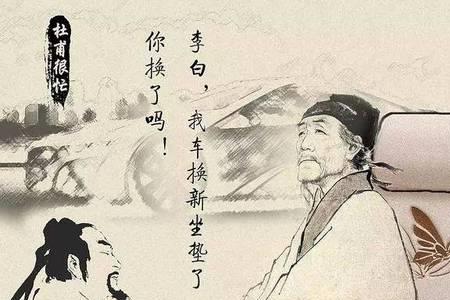 杜甫很忙
李白，我车换新坐垫了
你换了吗！